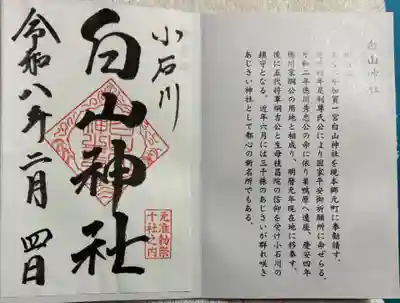 白山神社
加賀一宮白山神社を現本郷元町に奉勧請す。
足利尊氏公により国家平安御祈願所に命ぜらる。
和二年徳川秀忠公の命に依り巣鴨原へ遷座、慶安四年
徳川家綱公の用地と相成り、明暦元年現在地に移奉す。
後に五代将軍綱吉公と生母桂昌院の信仰を受け小石川の
鎮守となる。近年六月には三千株のあじさいが群れ咲き
あじさい神社として都心の新名所でもある。
小石川
白山神社
元准勅祭
十社之内
令和八年二月四日